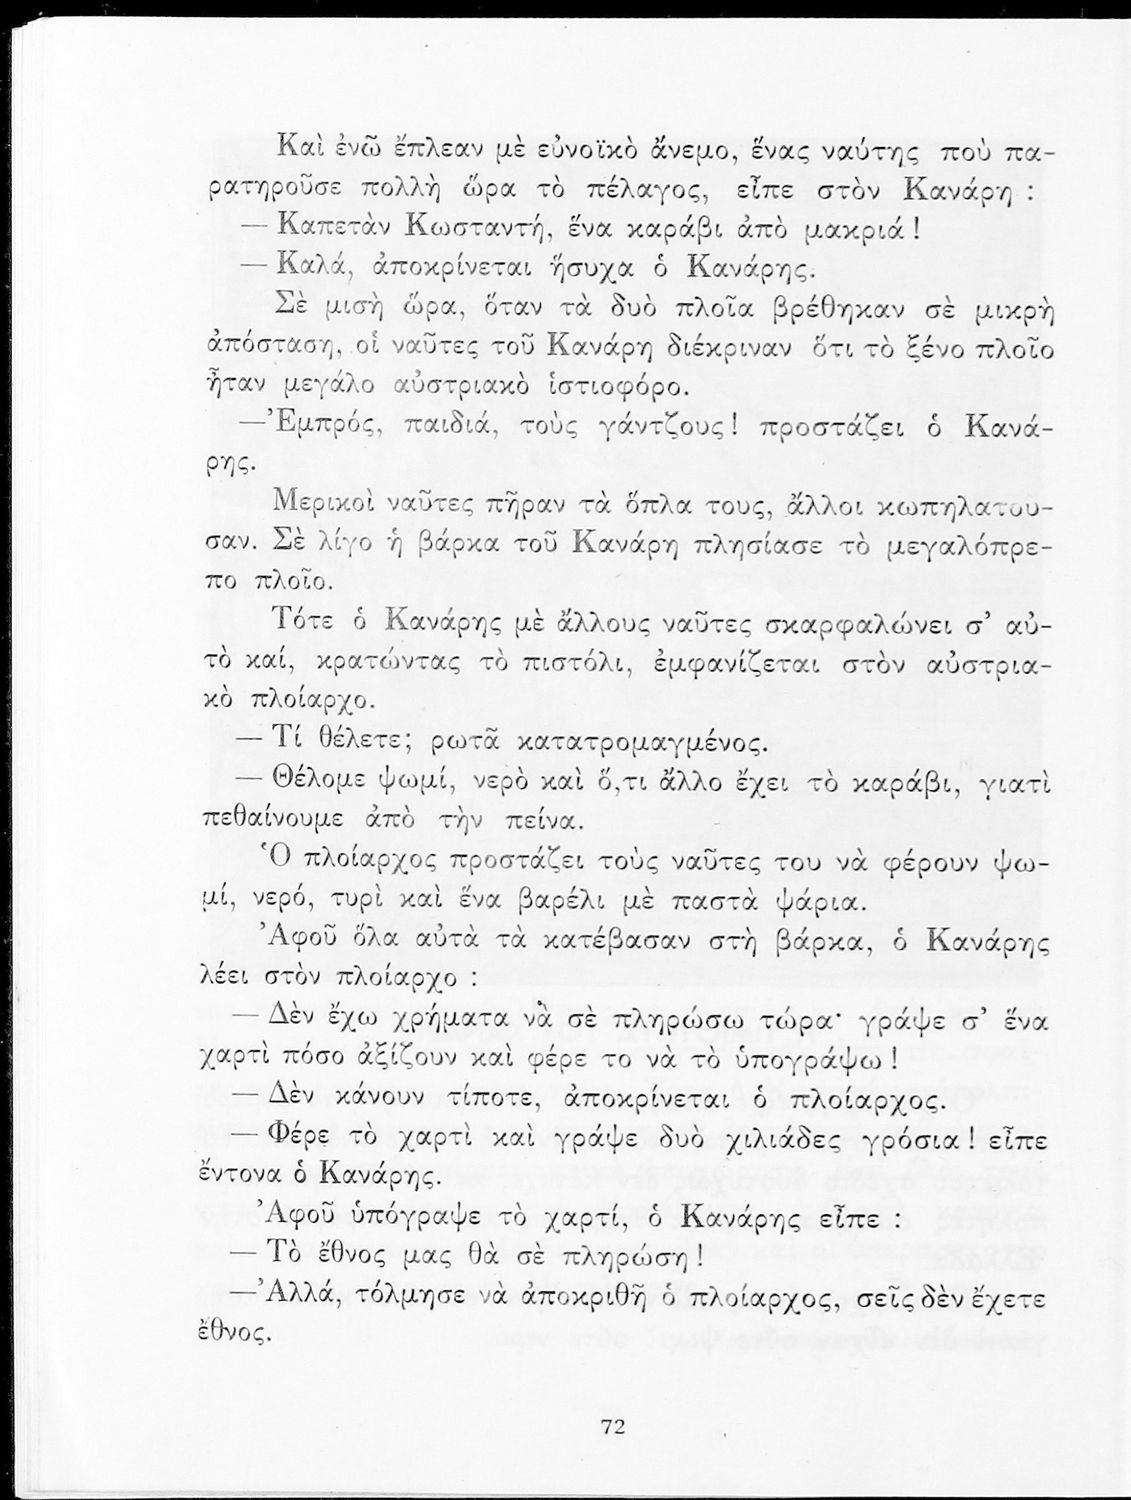 Καὶ ἐνῶ ἔπλεαν μὲ εὐνοϊκὸ ἄνεμο, ἕνας ναύτης ποὺ πα-
ρατηροῦσε πολλὴ ὥρα τὸ πέλαγος, εἶπε στὸν Κανάρη :
— Καπετὰν Κωσταντή, ἕνα καράβι ἀπὸ μακριά !
— Καλά, ἀποκρίνεται ἥσυχα ὁ Κανάρης.
Σὲ μισὴ ὥρα, ὅταν τὰ δυὸ πλοῖα βρέθηκαν σὲ μικρὴ
ἀπόσταση, οἱ ναῦτες τοῦ Κανάρη διέκριναν ὅτι τὸ ξένο πλοῖο
ἦταν μεγάλο αὐστριακὸ ἱστιοφόρο.
—Ἐμπρός, παιδιά, τοὺς γάντζους ! προστάζει ὁ Κανά-
ρης.
Μερικοὶ ναῦτες πῆραν τὰ ὅπλα τους, ἄλλοι κωπηλατοῦ-
σαν. Σὲ λίγο ἡ βάρκα τοῦ Κανάρη πλησίασε τὸ μεγαλόπρε-
πο πλοῖο.
Τότε ὁ Κανάρης μὲ ἄλλους ναῦτες σκαρφαλώνει σ’ αὐ-
τὸ καί, κρατώντας τὸ πιστόλι, ἐμφανίζεται στὸν αὐστρια-
κὸ πλοίαρχο.
— Τί θέλετε; ρωτᾶ κατατρομαγμένος.
— Θέλομε ψωμί, νερὸ καὶ ὅ,τι ἄλλο ἔχει τὸ καράβι, γιατὶ
πεθαίνουμε ἀπὸ τὴν πείνα.
Ὁ πλοίαρχος προστάζει τοὺς ναῦτες του νὰ φέρουν ψω-
μί, νερό, τυρὶ καὶ ἕνα βαρέλι μὲ παστὰ ψάρια.
Ἀφοῦ ὅλα αὐτὰ τὰ κατέβασαν στὴ βάρκα, ὁ Κανάρης
λέει στὸν πλοίαρχο :
— Δὲν ἔχω χρήματα νὰ σὲ πληρώσω τώρα· γράψε σ’ ἕνα
χαρτὶ πόσο ἀξίζουν καὶ φέρε το νὰ τὸ ὑπογράψω !
— Δὲν κάνουν τίποτε, ἀποκρίνεται ὁ πλοίαρχος.
— Φέρε τὸ χαρτὶ καὶ γράψε δυὸ χιλιάδες γρόσια ! εἶπε
ἔντονα ὁ Κανάρης.
Ἀφοῦ ὑπόγραψε τὸ χαρτί, ὁ Κανάρης εἶπε :
— Τὸ ἔθνος μας θὰ σὲ πληρώση !
—Ἀλλά, τόλμησε νὰ ἀποκριθῆ ὁ πλοίαρχος, σεῖς δὲν ἔχετε
ἔθνος.
72